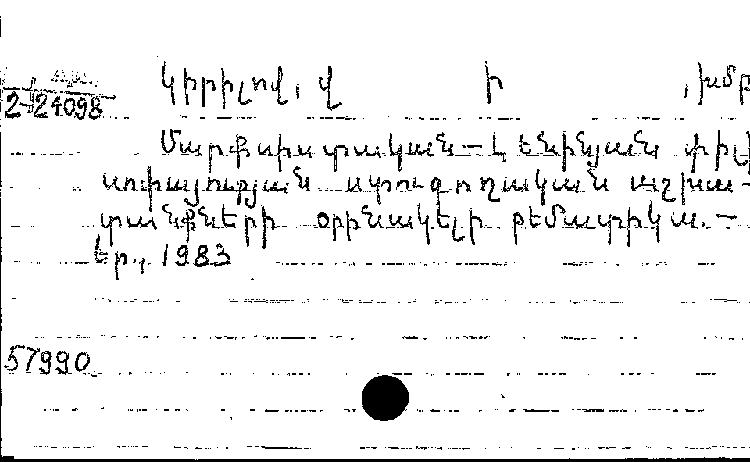 2-24098
Կիրիլով, Վ Ի , խմբ
Մարքսիստական-Լենինյան փիլի
սոփայության ստուգողական աշխա-
տանքների օրինակելի թեմատիկա. -
Եր., 1983
57990